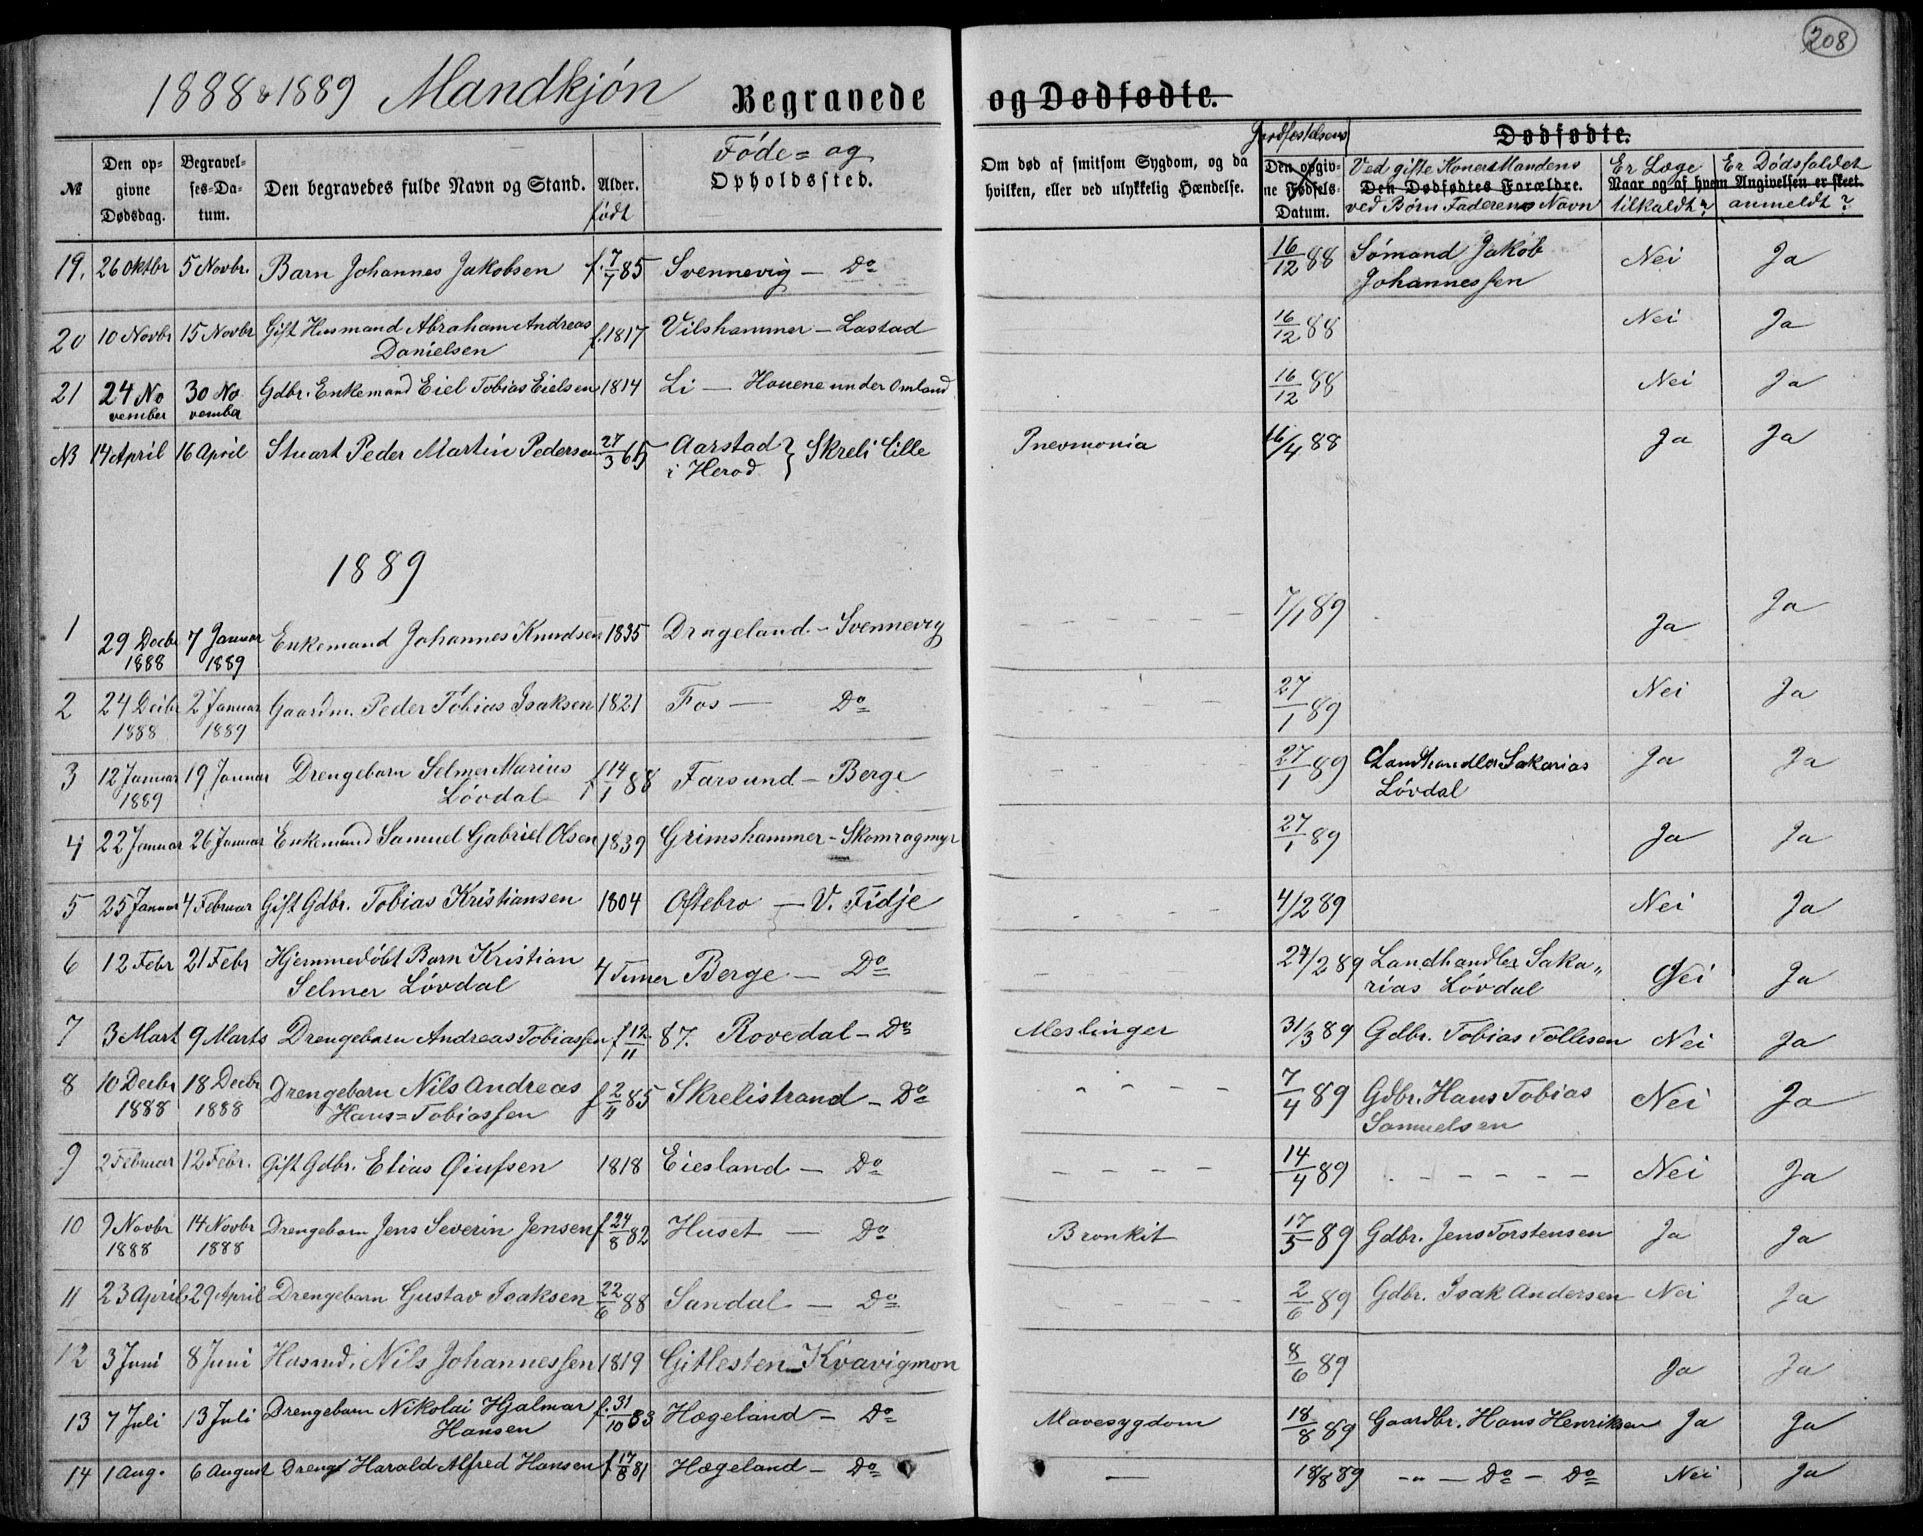 208
1888 & 1889 Mandkjön Begravede og Dødfødte.
№ Den opgivne Dødsdag. Begravelses-Datum. Den begravedes fulde Navn og Stand. Alder. født Føde= og Opholdssted. Om død af smitsom Sygdom, og da hvilken, eller ved ulykkelig Hændelse. Jordfæstelsens Den opgivne Fødsels-Datum. Dødfødte. Ved gifte Koner Mandens Den Dødfødtes Forældre. ved Børn Faderens Navn Er Læge Er Dödsfaldet Naar og af hvem Angivelsen er skeet. tilkaldt? anmeldt?
19. 26 Oktbr 5 Novbr. Barn Johannes Jakobsen f. 7/7 85 Svennevig — Do 16/12 88 Sömand Jakob Johannessen Nei Ja
20 10 Novbr 15 Novbr Gift Husmand Abraham Andreas Danielsen f. 1817 Vilshammer — Lastad 16/12 88 Nei Ja
21 24 November 30 November Gdbr. Enkemand Eiel Tobias Eielsen 1814 Li — Houene under Omland 16/12 88 Nei Ja
NB 14 April 16 April Stuart Peder Martin Pedersen 27/3 65 Aarstad i Herod } Skreli lille Pnevmonia 16/4 88 Ja Ja
1889
1 29 Decbr 1888 7 Januar 1889 Enkemand Johannes Knudsen 1835 Drageland — Svennevig 7/1 89 Ja Ja
2 24 Decbr 1888 2 Januar 1889 Gaardm. Peder Tobias Isaksen 1821 Fos — Do 27/1 89 Nei Ja
3 12 Januar 1889 19 Januar Drengebarn Selmer Marius Lövdal f 14/1 88 Farsund — Berge 27/1 89 Landhandler Sakarias Lövdal Ja Ja
4 22 Januar 26 Januar Enkemand Samuel Gabriel Olsen 1839 Grimshammer — Skomragmyr 27/1 89 Ja Ja
5 25 Januar 4 Februar Gift Gdbr. Tobias Kristiansen 1804 Øftebro — V. Fidje 4/2 89 Nei Ja
6 12 Febr 21 Febr Hjemmedöbt Barn Kristian Selmer Lövdal 4 Timer Berge — Do 24/2 89 Landhandler Sakarias Lövdal Nei Ja
7 3 Mart 9 Marts Drengebarn Andreas Tobiassen f 12/11 87. Rovedal — Do Meslinger 31/3 89 Gdbr. Tobias Tollesen Nei Ja
8 10 Decbr 1888 18 Decbr 1888 Drengebarn Nils Andreas Hans=Tobiassen f 2/4 85 Skrelistrand — Do 7/4 89 Gdbr. Hans Tobias Samuelsen Nei Ja
9 2 Februar 12 Febr. Gift Gdbr. Elias Øiufsen 1818 Eiesland — Do 14/4 89 Nei Ja
10 9 Novbr 1888 14 Novbr 1888 Drengebarn Jens Severin Jensen f 24/8 82 Huset — Do Bronkit 17/5 89 Gdbr. Jens Torstensen Ja Ja
11 23 April 29 April Drengebarn Gustav Isaksen 22/6 88 Sandal — Do 2/6 89 Gdbr. Isak Andersen Nei Ja
12 3 Juni 8 Juni Husmd. Nils Johannessen 1819 Gitlesten — Kvavigmon 8/6 89 Ja Ja
13 7 Juli 13 Juli Drengebarn Nikolai Hjalmar Hansen f. 31/10 83 Hægeland — Do Mavesygdom 18/8 89 Gaardbr. Hans Henriksen Ja Ja
14 1 Aug. 6 August Dreng Harald Alfred Hansen f 17/8 81 Hægeland — Do — 18/8 89 -"- — Do — Do Nei Ja